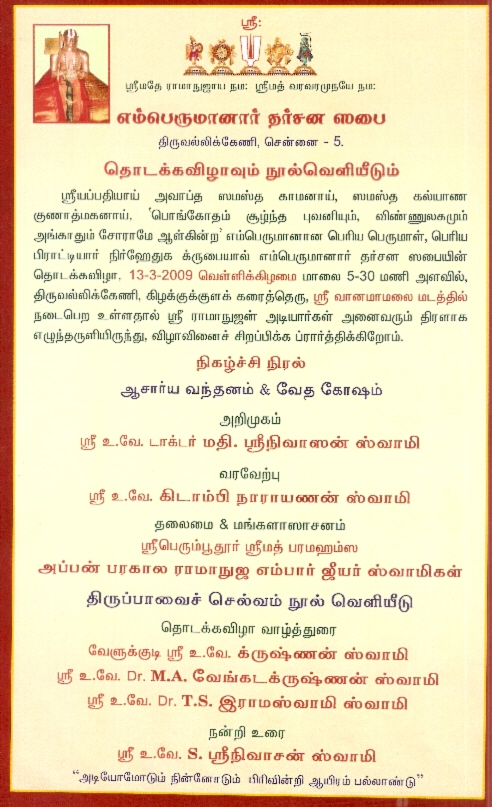 ஸ்ரீ:
ஸ்ரீமதே ராமாநுஜாய நம: ஸ்ரீமத் வரவரமுநயே நம:
எம்பெருமானார் தர்சன ஸபை
திருவல்லிக்கேணி, சென்னை - 5.
தொடக்கவிழாவும் நூல்வெளியீடும்
ஸ்ரீயப்பதியாய் அவாப்த ஸமஸ்த காமனாய், ஸமஸ்த கல்யாண
குணாத்மகனாய், 'பொங்கோதம் சூழ்ந்த புவனியும், விண்ணுலகமும்
அங்காதும் சோராமே ஆள்கின்ற' எம்பெருமானான பெரிய பெருமாள், பெரிய
பிராட்டியார் நிர்ஹேதுக க்ருபையால் எம்பெருமானார் தர்சன ஸபையின்
தொடக்கவிழா, 13-3-2009 வெள்ளிக்கிழமை மாலை 5-30 மணி அளவில்,
திருவல்லிக்கேணி, கிழக்குக்குளக் கரைத்தெரு, ஸ்ரீ வானமாமலை மடத்தில்
நடைபெற உள்ளதால் ஸ்ரீ ராமாநுஜன் அடியார்கள் அனைவரும் திரளாக
எழுந்தருளியிருந்து, விழாவினைச் சிறப்பிக்க ப்ரார்த்திக்கிறோம்.
நிகழ்ச்சி நிரல்
ஆசார்ய வந்தனம் & வேத கோஷம்
அறிமுகம்
ஸ்ரீ உ.வே. டாக்டர் மதி. ஸ்ரீநிவாஸன் ஸ்வாமி
வரவேற்பு
ஸ்ரீ உ.வே. கிடாம்பி நாராயணன் ஸ்வாமி
தலைமை & மங்களாஸாசனம்
ஸ்ரீபெரும்பூதூர் ஸ்ரீமத் பரமஹம்ஸ
அப்பன் பரகால ராமாநுஜ எம்பார் ஜீயர் ஸ்வாமிகள்
திருப்பாவைச் செல்வம் நூல் வெளியீடு
தொடக்கவிழா வாழ்த்துரை
வேளுக்குடி ஸ்ரீ உ.வே. க்ருஷ்ணன் ஸ்வாமி
ஸ்ரீ உ.வே. Dr. M.A. வேங்கடக்ருஷ்ணன் ஸ்வாமி
ஸ்ரீ உ.வே. Dr. T.S. இராமஸ்வாமி ஸ்வாமி
நன்றி உரை
ஸ்ரீ உ.வே. S. ஸ்ரீநிவாசன் ஸ்வாமி
"அடியோமோடும் நின்னோடும் பிரிவின்றி ஆயிரம் பல்லாண்டு"